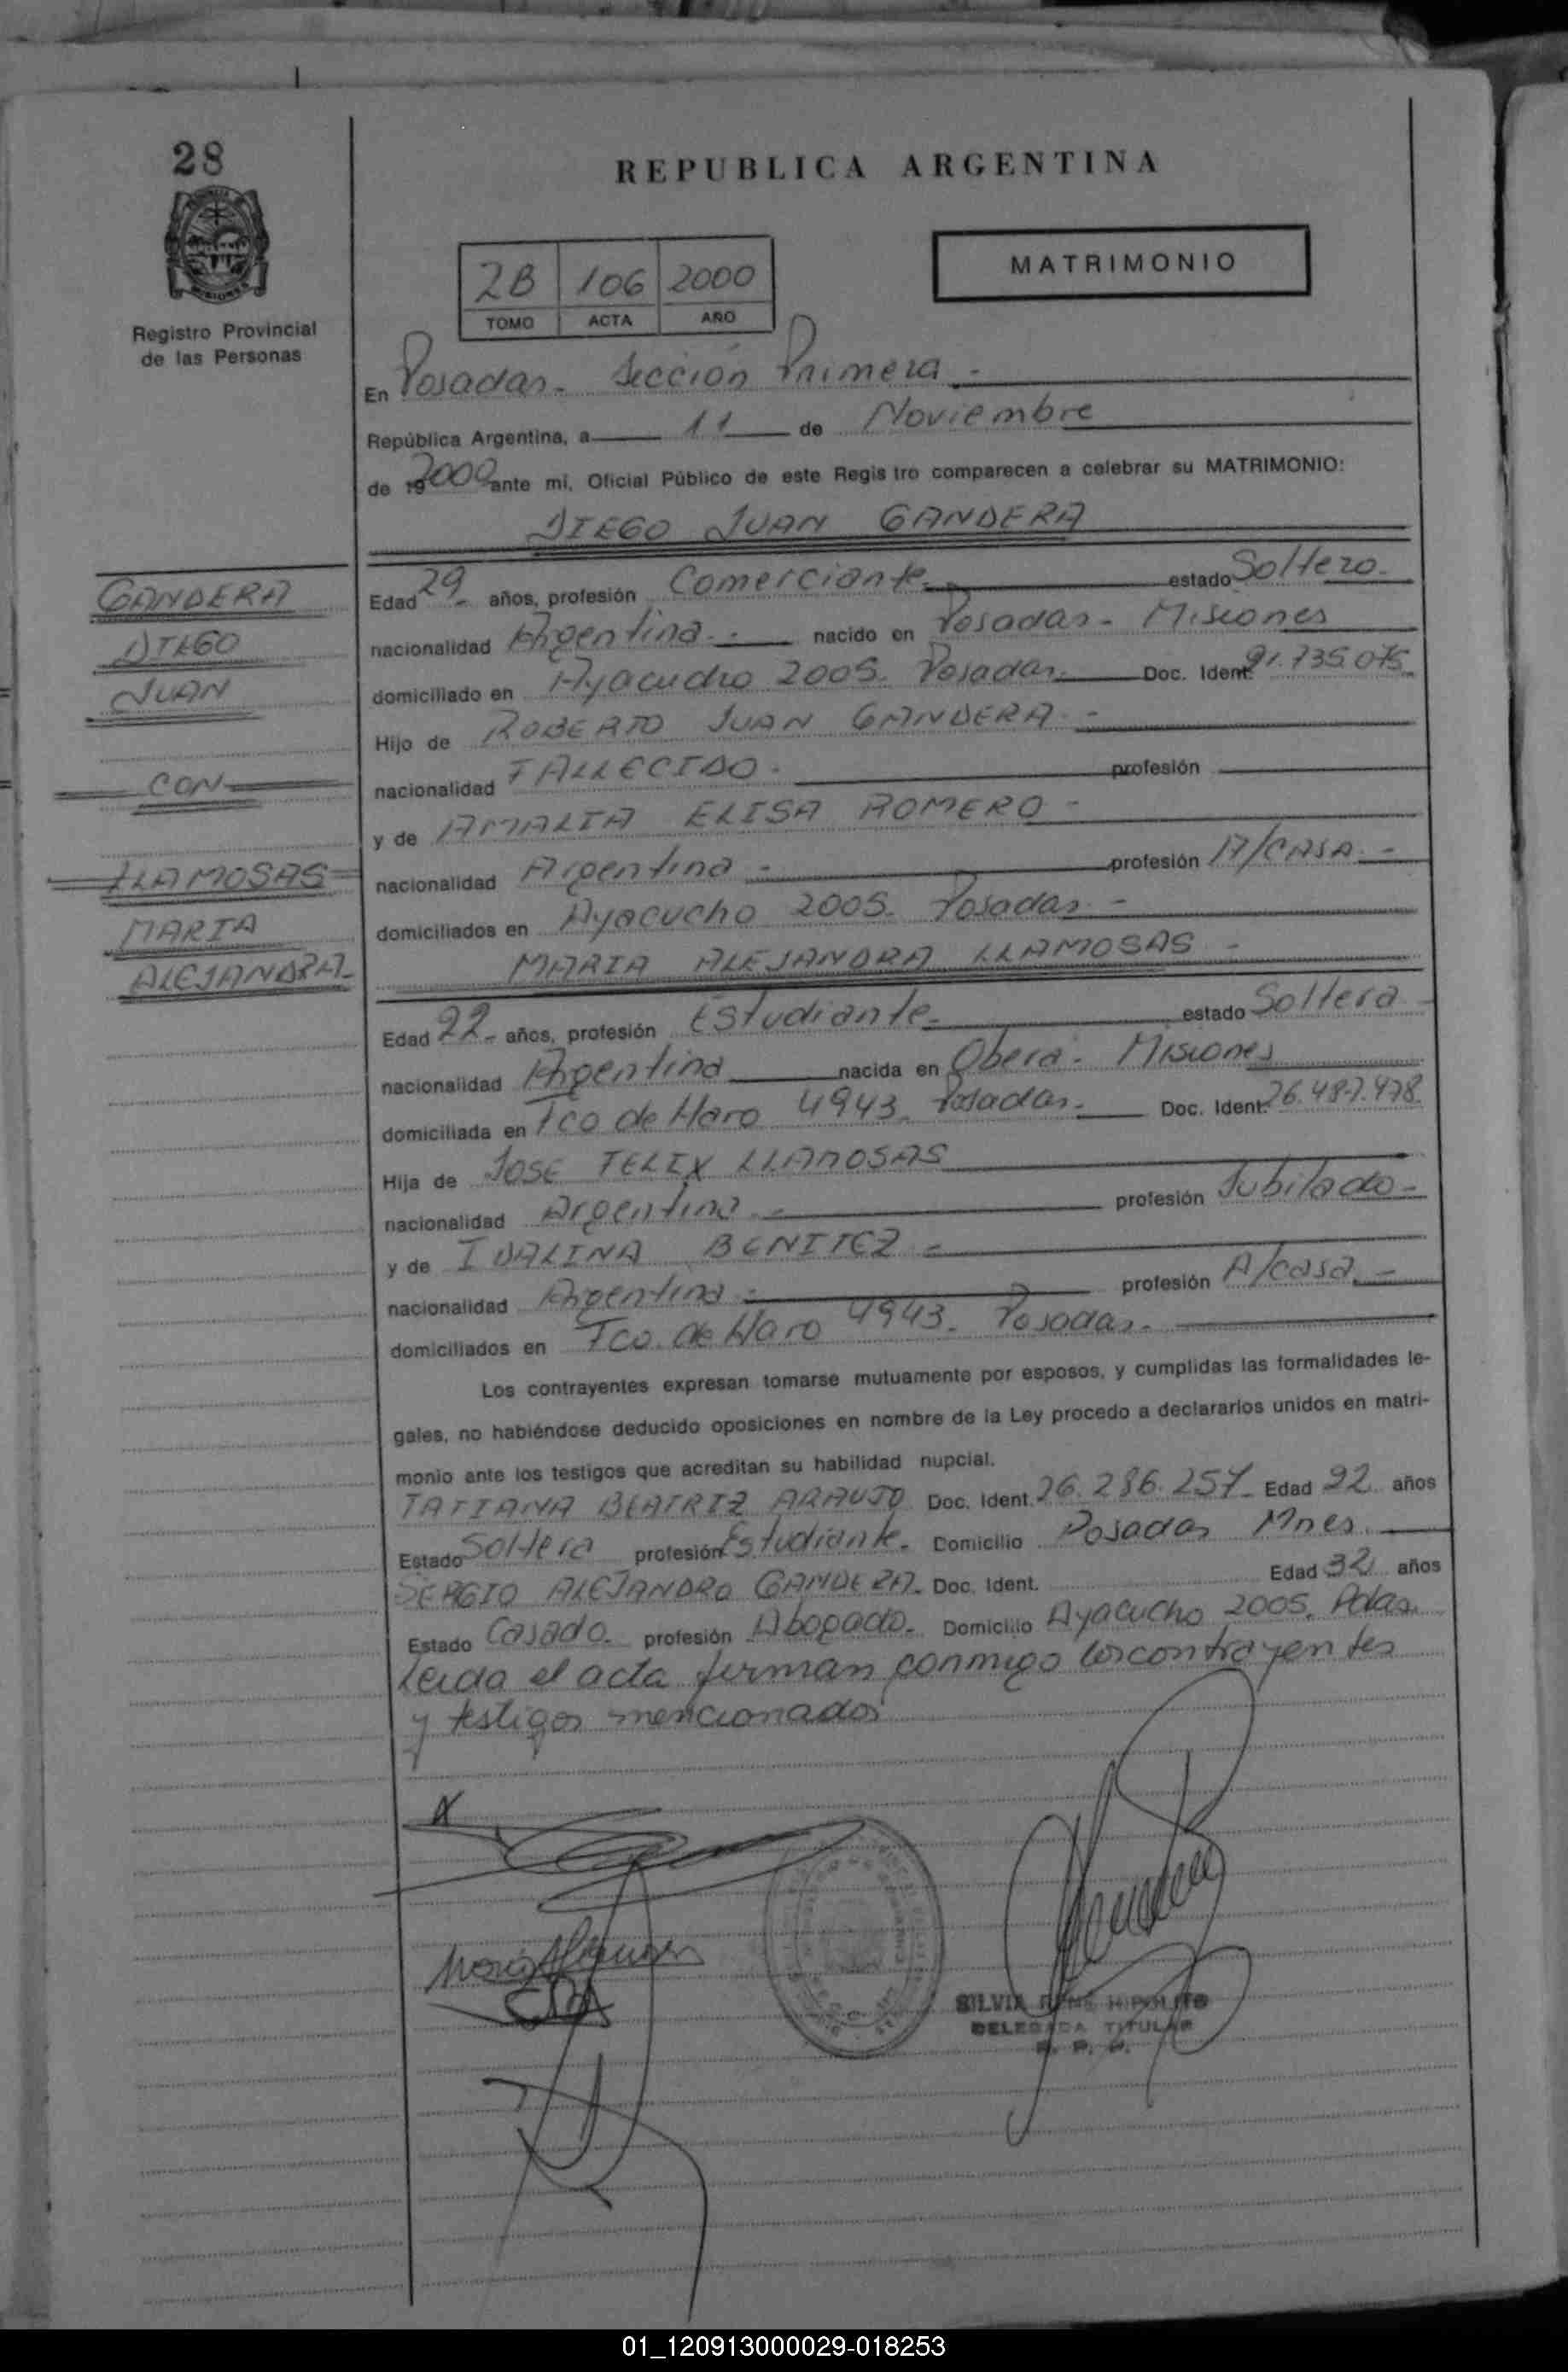 28
REPUBLICA ARGENTINA
MATRIMONIO
2B 106 2000
TOMO ACTA AÑO
Registro Provincial
de las Personas
En Posadas. Sección Primera.-
República Argentina, a 11 de Noviembre
de 192000 ante mi, Oficial Público de este Registro comparecen a celebrar su MATRIMONIO:
DIEGO JUAN GANDERA
GANDERA
DIEGO
JUAN
CON
LLAMOSAS
MARIA
ALEJANDRA-
Edad 29- años, profesión Comerciante- estado Soltero-
nacionalidad Argentina.- nacido en Posadas- Misiones
domiciliado en Ayacucho 2005. Posadas. Doc. Ident. 21.735.075
Hijo de ROBERTO JUAN GANDERA -
nacionalidad FALLECIDO- profesión
y de AMALIA ELISA ROMERO-
nacionalidad Argentina- profesión A/CASA.-
domiciliados en Ayacucho 2005. Posadas-
MARIA ALEJANDRA LLAMOSAS-
Edad 22- años, profesión Estudiante- estado Soltera-
nacionalidad Argentina nacida en Oberá- Misiones
domiciliada en Fco de Haro 4943. Posadas- Doc. Ident. 26.487.478.
Hija de JOSE FELIX LLAMOSAS
nacionalidad Argentina- profesión Jubilado-
y de IDALINA BENITEZ-
nacionalidad Argentina- profesión A/casa.-
domiciliados en Fco. de Haro 4943. Posadas.-
Los contrayentes expresan tomarse mutuamente por esposos, y cumplidas las formalidades le-
gales, no habiéndose deducido oposiciones en nombre de la Ley procedo a declararlos unidos en matri-
monio ante los testigos que acreditan su habilidad nupcial.
TATIANA BEATRIZ ARAUJO Doc. Ident. 26.286.257- Edad 22 años
Estado Soltera profesión Estudiante- Domicilio Posadas Mnes.
SERGIO ALEJANDRO GANDERA- Doc. Ident. Edad 32 años
Estado Casado. profesión Abogado- Domicilio Ayacucho 2005. Pdas.
Leida el acta firman conmigo los contrayentes
y testigos mencionados
SILVIA RENE HIPOLITO
DELEGADA TITULAR
R. P. P.
01_120913000029-018253